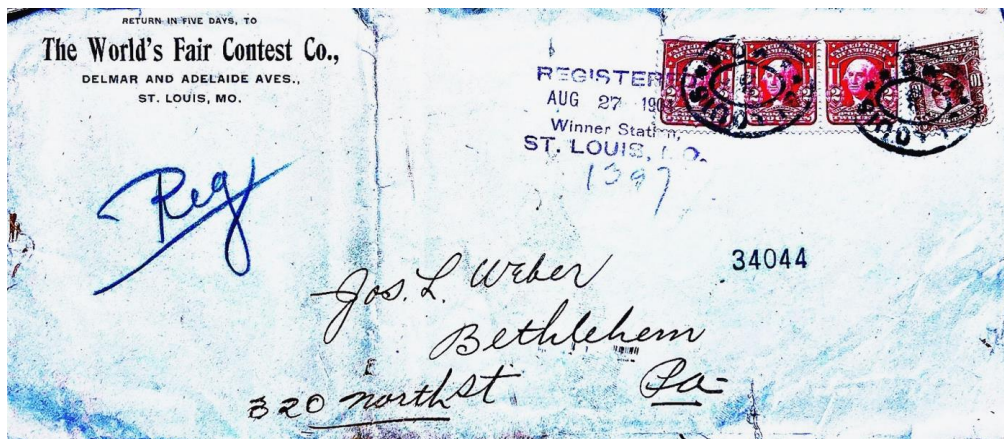 RETURN IN FIVE DAYS, TO
The World's Fair Contest Co.,
DELMAR AND ADELAIDE AVES.,
ST. LOUIS, MO.
Reg
REGISTERED
AUG 27
Winner Station,
ST. LOUIS, MO.
1397
34044
Jos. L. Weber
Bethlehem
Pa-
320 North St